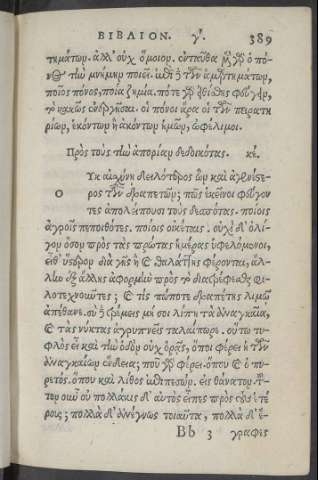 ΒΙΒΛΙΟΝ. γ΄. 389
τημάτων. ἀλλ' οὐχ ὅμοιον. ἐνταῦθα μὲν γὰρ ὁ πό-
νος τὴν μνήμην ποιεῖ. ἐπὶ τῶν ἁμαρτημάτων,
ποῖος πόνος, ποία ζημία. πότε γὰρ
κακῶς ἐνεργῆσαι. οἱ πόνοι ἄρα οἱ τῶν πειρατη
ρίων, ἑκόντων ἢ ἀκόντων ἡμῶν, ὠφέλιμοι.
Πρὸς τοὺς τὴν ἀπορίαν δεδοικότας. κϛ.
Ο Υκ αἰσχύνῃ δειλότερος ὢν καὶ ἀγεννέστε
ρος τῶν δραπετῶν; πῶς ἐκεῖνοι φεύγον
τες ἀπολείπουσι τοὺς δεσπότας. ποίοις
ἀγροῖς πεποιθότες. ποίοις οἰκέταις. οὐχὶ δ' ὀλί-
γον ὅσον πρὸς τὰς πρώτας ἡμέρας ὑφελόμενοι,
εἶθ' ὕστερον διὰ γῆς ἢ καὶ θαλάττης φέρονται, ἄλ-
λην ἐξ ἄλλης ἀφορμὴν πρὸς τὸ διατρέφεσθαι φι-
λοτεχνοῦντες; καὶ τίς πώποτε δραπέτης λιμῷ
ἀπέθανε. σὺ δὲ τρέμεις μή σοι λίπῃ τὰ ἀναγκαῖα,
καὶ τὰς νύκτας ἀγρυπνεῖς ταλαίπωρε. οὕτω τυ-
φλὸς εἶ καὶ τὴν ὁδὸν οὐχ ὁρᾷς, ὅποι φέρει ἡ τῶν
ἀναγκαίων ἔνδεια; ποῦ γὰρ φέρει. ὅπου καὶ ὁ πυ-
ρετός. ὅπου καὶ λίθος ἐπιπεσών. εἰς θάνατον. τοῦ-
τον οὖν οὐ πολλάκις δ' αὐτὸς εἶπες πρὸς τοὺς ἑταί
ροις; πολλὰ δ' ἀνέγνως τοιαῦτα, πολλὰ δ' ἔ-
Bb 3 γραφες